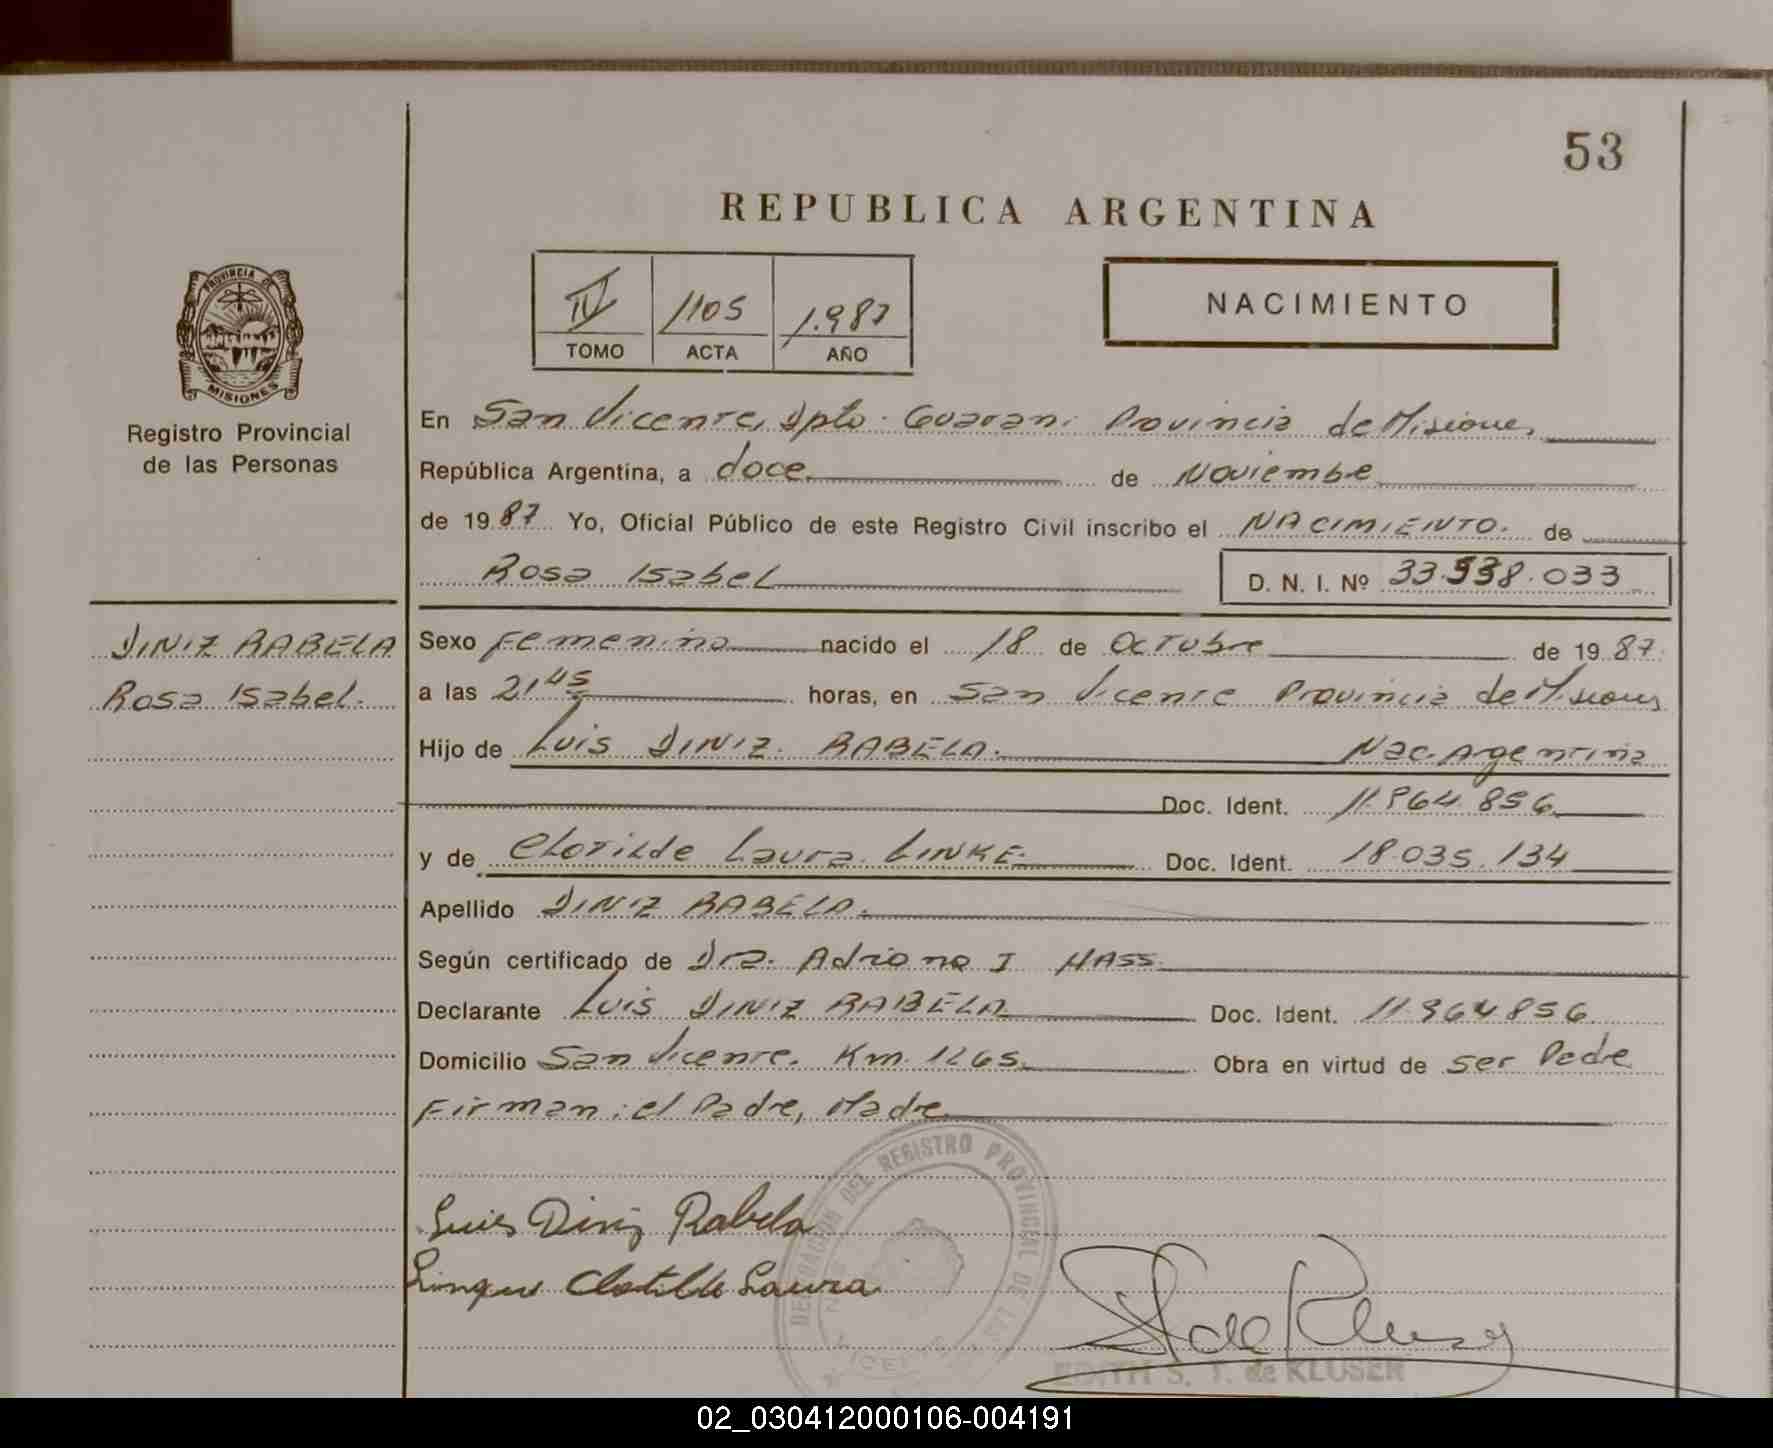 53
REPUBLICA ARGENTINA
PROVINCIA DE
MISIONES
Registro Provincial
de las Personas
IV 1105 1.987
TOMO ACTA AÑO
NACIMIENTO
En San Vicente, Dpto. Guarani Provincia de Misiones
República Argentina, a doce de Noviembre
de 1987 Yo, Oficial Público de este Registro Civil inscribo el NACIMIENTO. de
Rosa Isabel D. N. I. Nº 33.538.033
DINIZ RABELA
Rosa Isabel.
Sexo Femenino nacido el 18 de Octubre de 1987
a las 21 45 horas, en San Vicente Provincia de Misiones
Hijo de Luis DINIZ. RABELA. Nac. Argentina
Doc. Ident. 11.964.856
y de Clotilde Laura LINKE. Doc. Ident. 18.035.134
Apellido DINIZ RABELA.
Según certificado de Dra. Adriana I HASS.
Declarante Luis DINIZ RABELA Doc. Ident. 11.964.856.
Domicilio San Vicente. Km. 1265. Obra en virtud de ser Padre
Firman: el Padre, Madre
Luis Diniz Rabela
Clotilde Laura
DELEGACION DEL REGISTRO PROVINCIAL DE LAS
de Kluser
EDITH S. T. de KLUSER
02_030412000106-004191